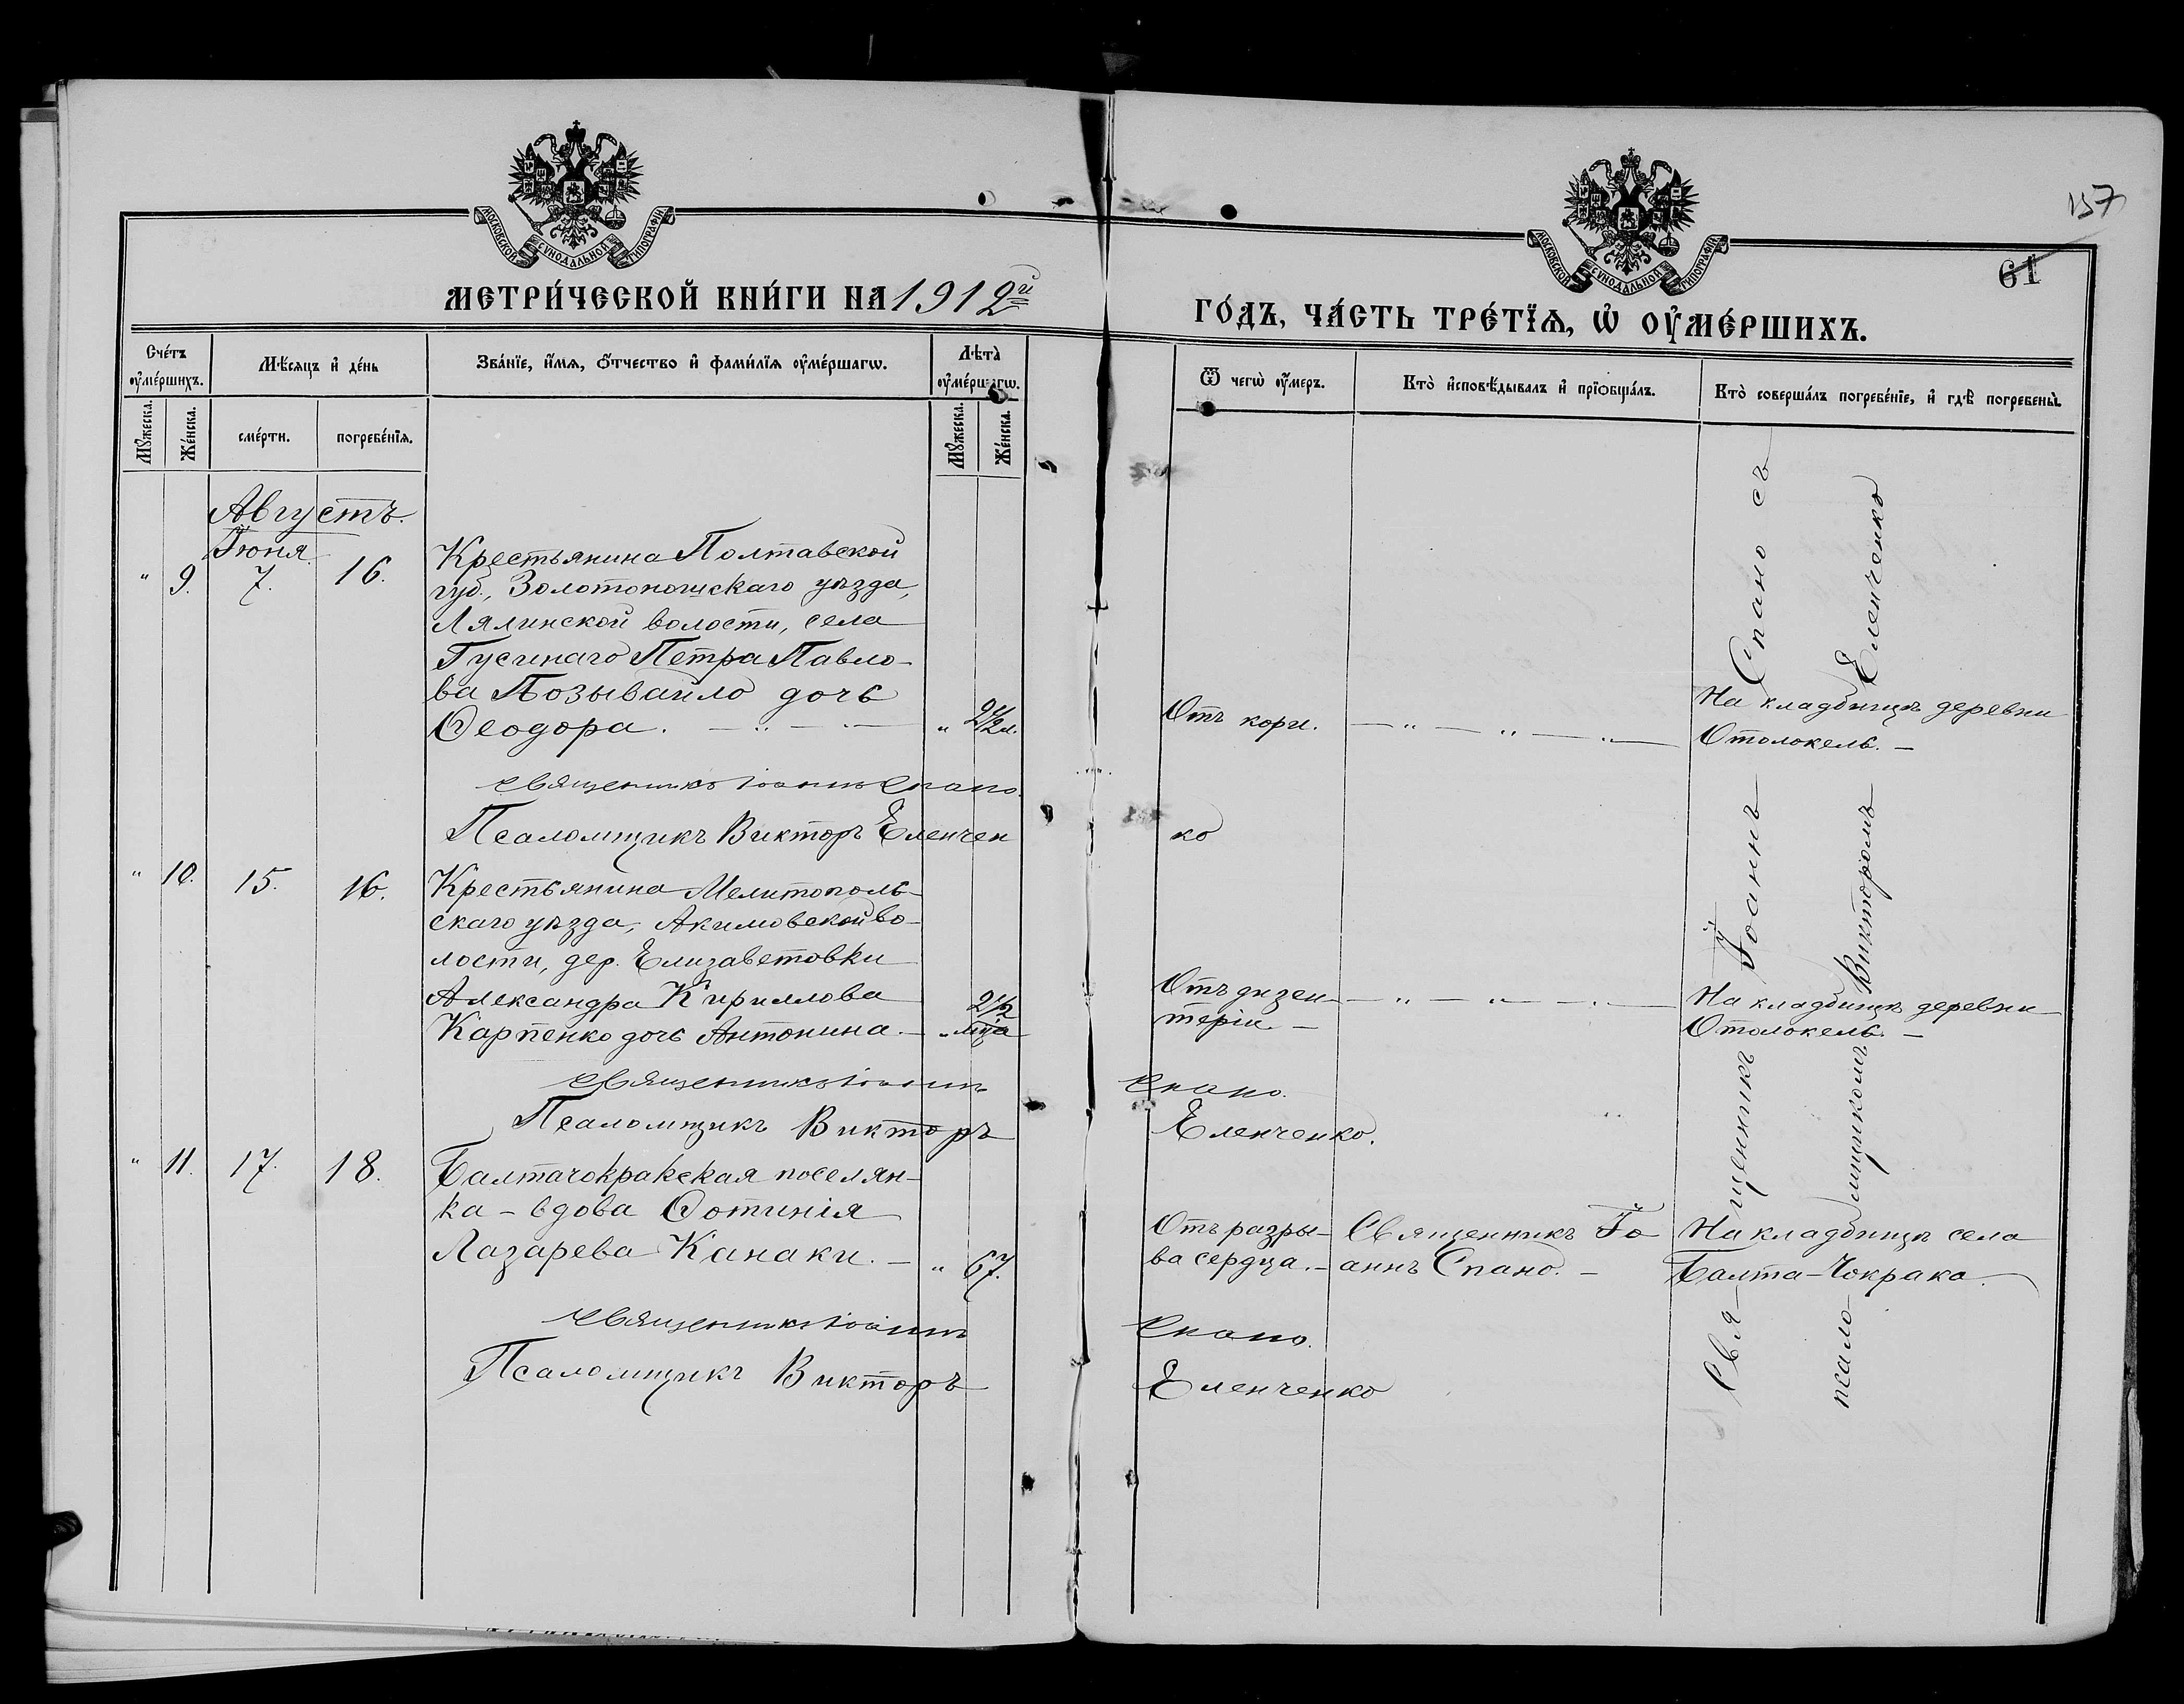 157
61
МОСКОВСКОЙ СѴНОДАЛЬНОЙ ТИПОГРАФІИ
МОСКОВСКОЙ СѴНОДАЛЬНОЙ ТИПОГРАФІИ
МЕТРИ́ЧЕСКОЙ КНИ́ГИ НА 1912й
ГО́ДЪ, ЧА́СТЬ ТРЕ́ТЇѦ, Ѡ҆ ОУ҆МЕ́РШИХЪ.
Сче́тъ оу҆ме́ршихъ.
Мѣ́сяцъ и҆ де́нь
Зва́нїе, и҆́мѧ, ѻ҆́тчество и҆ фами́лїѧ оу҆ме́ршагѡ.
Лѣ́та оу҆ме́ршагѡ.
Ѿ чегѡ̀ оу҆́меръ.
Кто̀ и҆сповѣ́дывалъ и҆ прїѡбща́лъ.
Кто̀ соверша́лъ погребе́нїе, и҆ гдѣ̀ погребены̀.
Мꙋ́жеска.
Же́нска.
сме́рти.
погребе́нїѧ.
Мꙋ́жеска.
Же́нска.
Августъ.
Іюня
" 9. 7. 16.
Крестьянина Полтавской
губ., Золотоношскаго уѣзда,
Лялинской волости, села
Гусинаго Петра Павло-
ва Позывайло дочь
Ѳеодора. — " — " —
" 2½ л.
Отъ кори. — " — " — " —
На кладбищѣ деревни
Отолокель. —
Священникъ Іоаннъ Спано.
Псаломщикъ Викторъ Еленчен ко
" 10. 15. 16.
Крестьянина Мелитополь-
скаго уѣзда, Акимовской во-
лости, дер. Елизаветовки
Александра Кириллова
Карпенко дочь Антонина. —
" 2½ мца
Отъ дизен-
теріи. —
— " — " — " —
На кладбищѣ деревни
Отолокель. —
Священникъ Іоаннъ Спано.
Псаломщикъ Викторъ Еленченко.
" 11. 17. 18.
Балтачокракская поселян-
ка - вдова Фотинія
Лазарева Канаки. —
" 67.
Отъ разры-
ва сердца. —
Священникъ Іо
аннъ Спано. —
На кладбищѣ села
Балта-Чокрака.
Священникъ Іоаннъ Спано.
Псаломщикъ Викторъ Еленченко
Священникъ Іоаннъ Спано съ
псаломщикомъ Викторомъ Еленченко